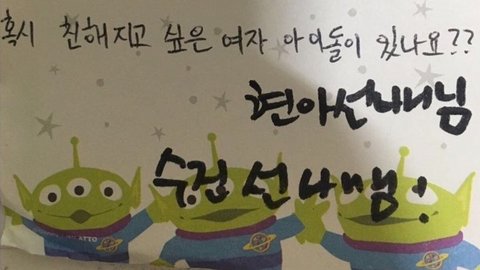 혹시 친해지고 싶은 여자 아이돌이 있나요??
현아선배님
수정 선배님!